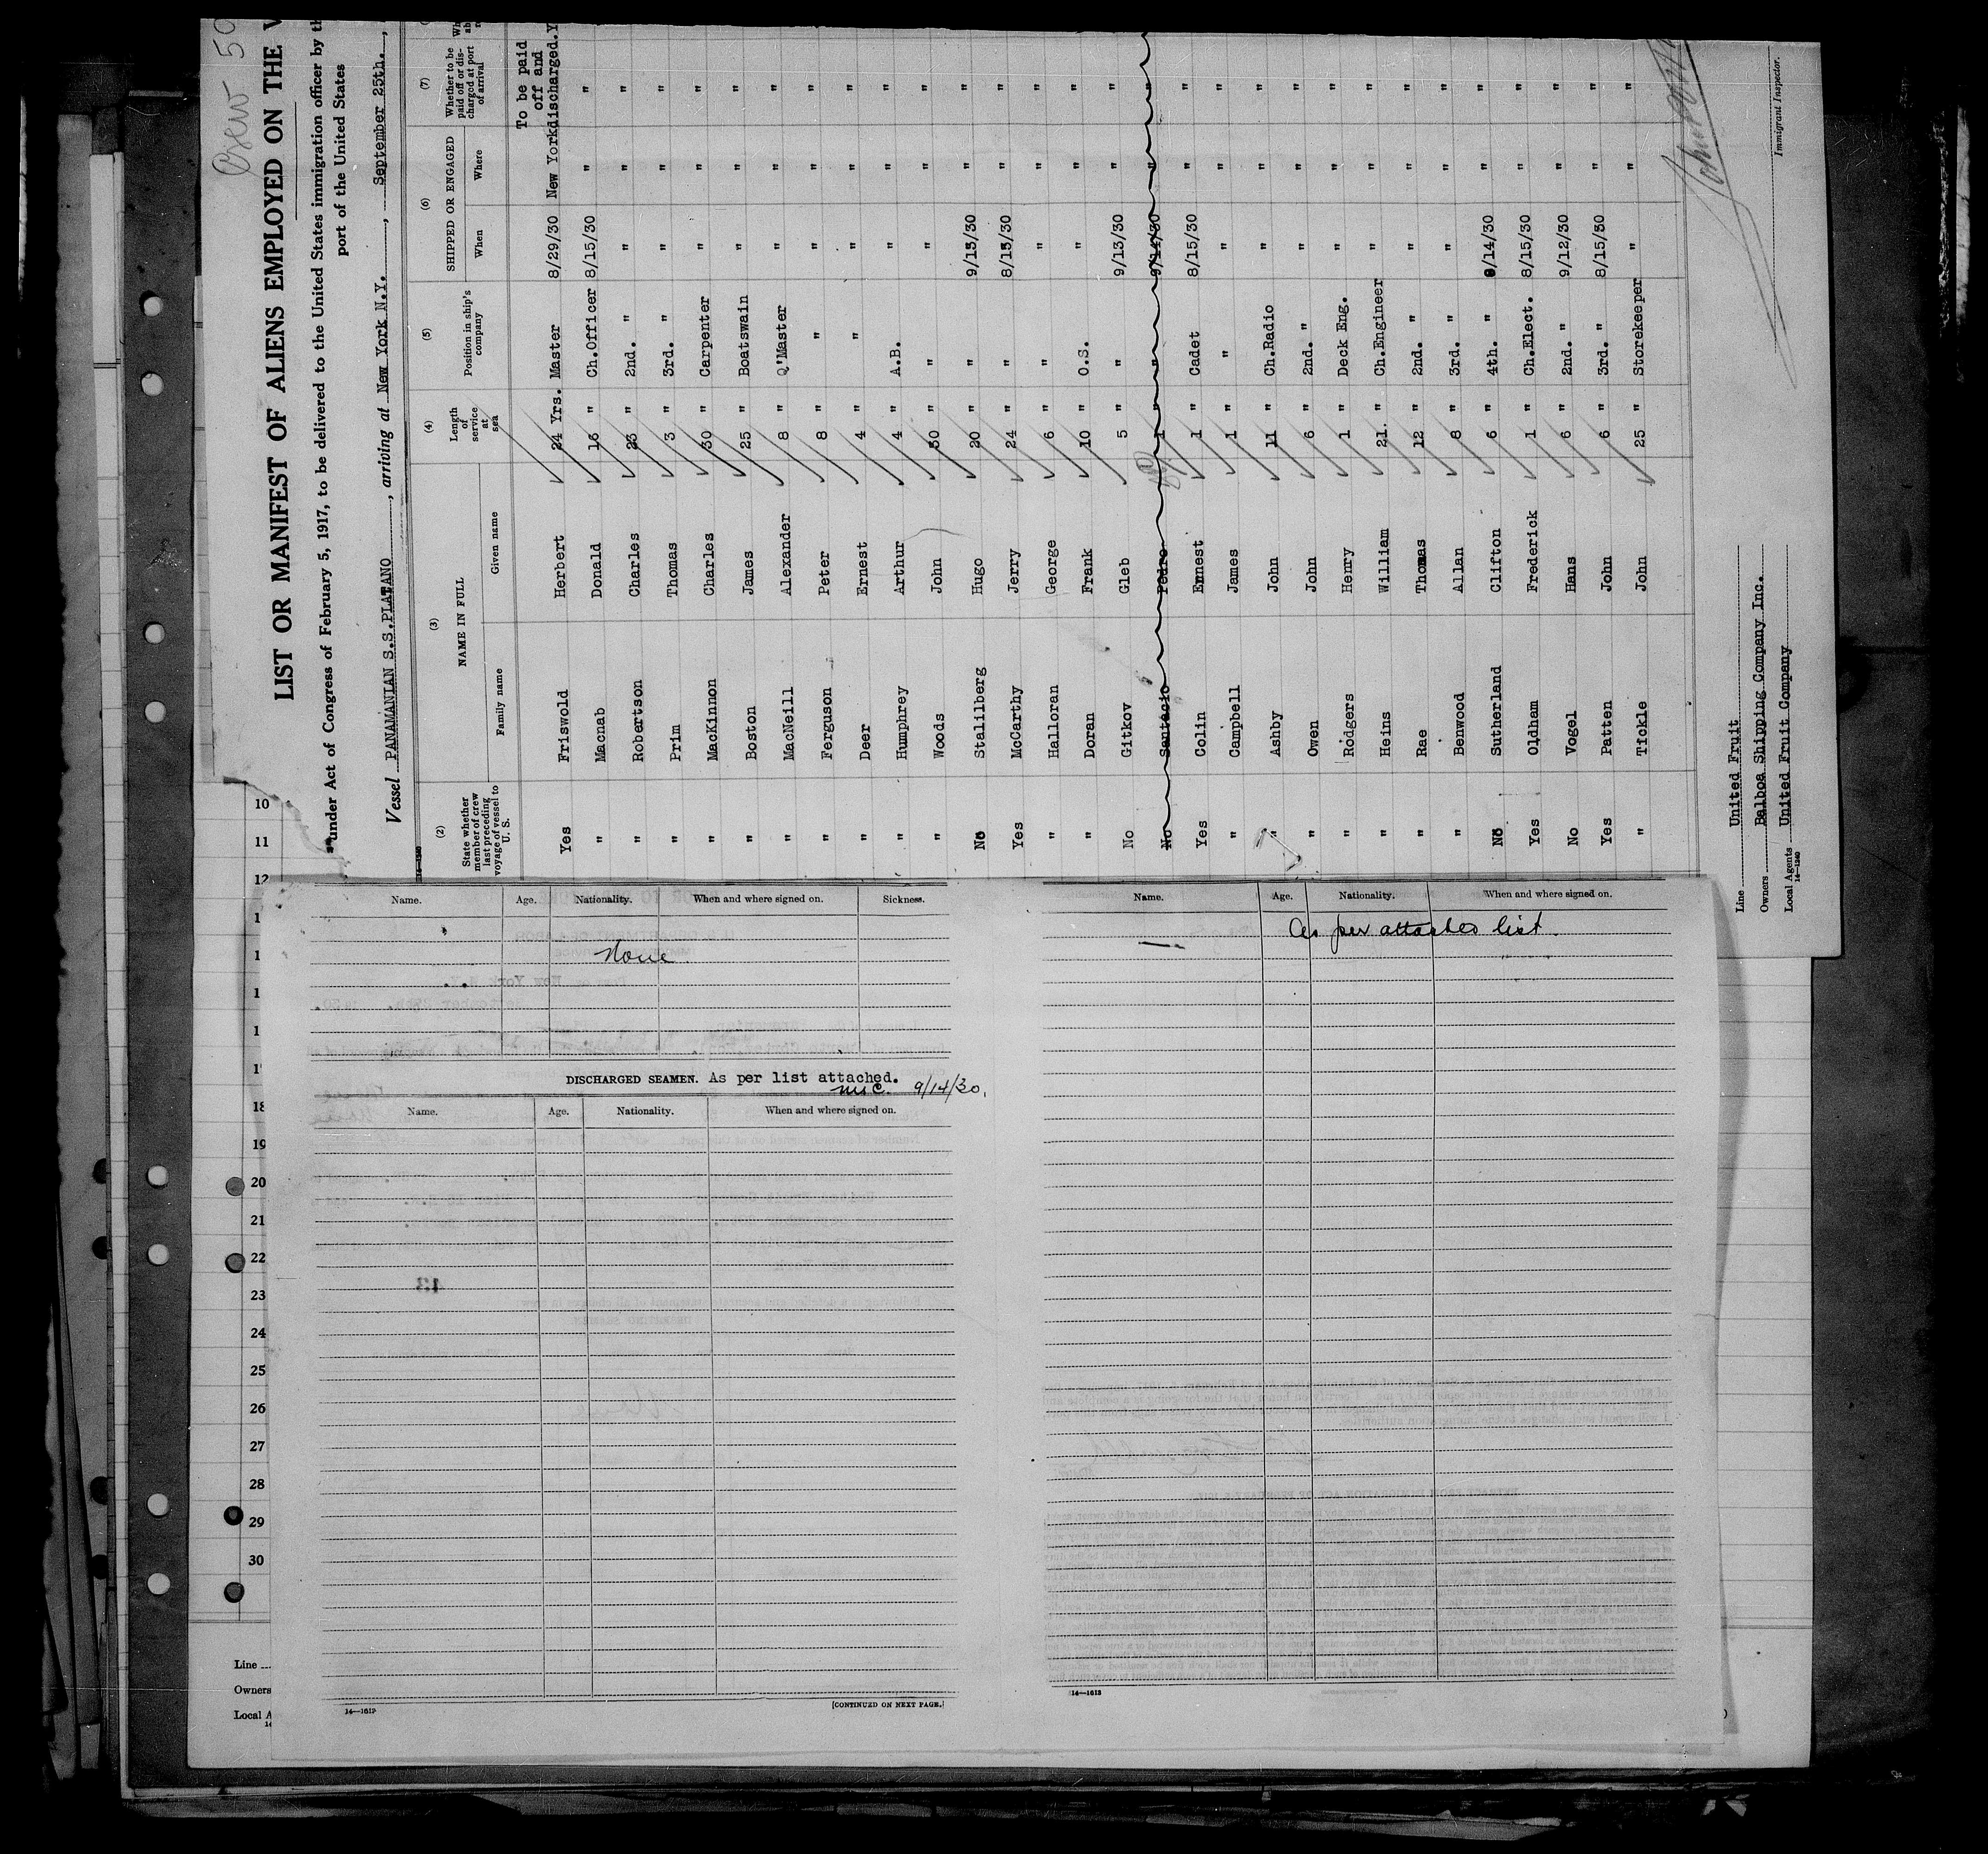 Crew 50
LIST OR MANIFEST OF ALIENS EMPLOYED ON THE V
under Act of Congress of February 5, 1917, to be delivered to the United States immigration officer by th
port of the United States
Vessel PANAMANIAN S.S.PLATANO, arriving at New York N.Y., September 25th.,
(2) State whether member of crew last preceding voyage of vessel to U. S. (3) NAME IN FULL Family name Given name (4) Length of service at sea (5) Position in ship's company (6) SHIPPED OR ENGAGED When Where (7) Whether to be paid off or discharged at port of arrival
To be paid
off and
Yes Friswold Herbert 24 Yrs. Master 8/29/30 New York discharged.Y
" Macnab Donald 16 " Ch.Officer 8/15/30 " "
" Robertson Charles 23 " 2nd. " " " "
" Prim Thomas 3 " 3rd. " " " "
" MacKinnon Charles 30 " Carpenter " " "
" Boston James 25 " Boatswain " " "
" MacNeill Alexander 8 " Q'Master " " "
" Ferguson Peter 8 " " " " "
" Deer Ernest 4 " " " " "
" Humphrey Arthur 4 " A.B. " " "
" Woods John 30 " " " " "
No Stallberg Hugo 20 " " 9/13/30 " "
Yes McCarthy Jerry 24 " " 8/15/30 " "
" Halloran George 6 " " " " "
" Doran Frank 10 " O.S. " " "
No Gitkov Gleb 5 " " 9/13/30 " "
No Pedro 1 " " 9/14/30 " "
Yes Colin Ernest 1 " Cadet 8/15/30 " "
" Campbell James 1 " " " " "
" Ashby John 11 " Ch.Radio " " "
" Owen John 6 " 2nd. " " " "
" Rodgers Henry 1 " Deck Eng. " " "
" Heins William 21. " Ch.Engineer " " "
" Rae Thomas 12 " 2nd. " " " "
" Benwood Allan 8 " 3rd. " " " "
No Sutherland Clifton 6 " 4th. " 9/14/30 " "
Yes Oldham Frederick 1 " Ch.Elect. 8/15/30 " "
No Vogel Hans 6 " 2nd. " 9/12/30 " "
Yes Patten John 6 " 3rd. " 8/15/30 " "
" Tickle John 25 " Storekeeper " " "
Immigrant Inspector.
Line United Fruit
Owners Balboa Shipping Company Inc.
Local Agents United Fruit Company
14—1240
10
11
12
1
1
1
1
1
18
19
20
21
22
23
24
25
26
27
28
29
30
Line
Owners
Local A
14
Name. Age. Nationality. When and where signed on. Sickness.
None
DISCHARGED SEAMEN. As per list attached.
9/14/30.
Name. Age. Nationality. When and where signed on.
14—1613
[CONTINUED ON NEXT PAGE.]
Name. Age. Nationality. When and where signed on.
As per attached list.
14—1613